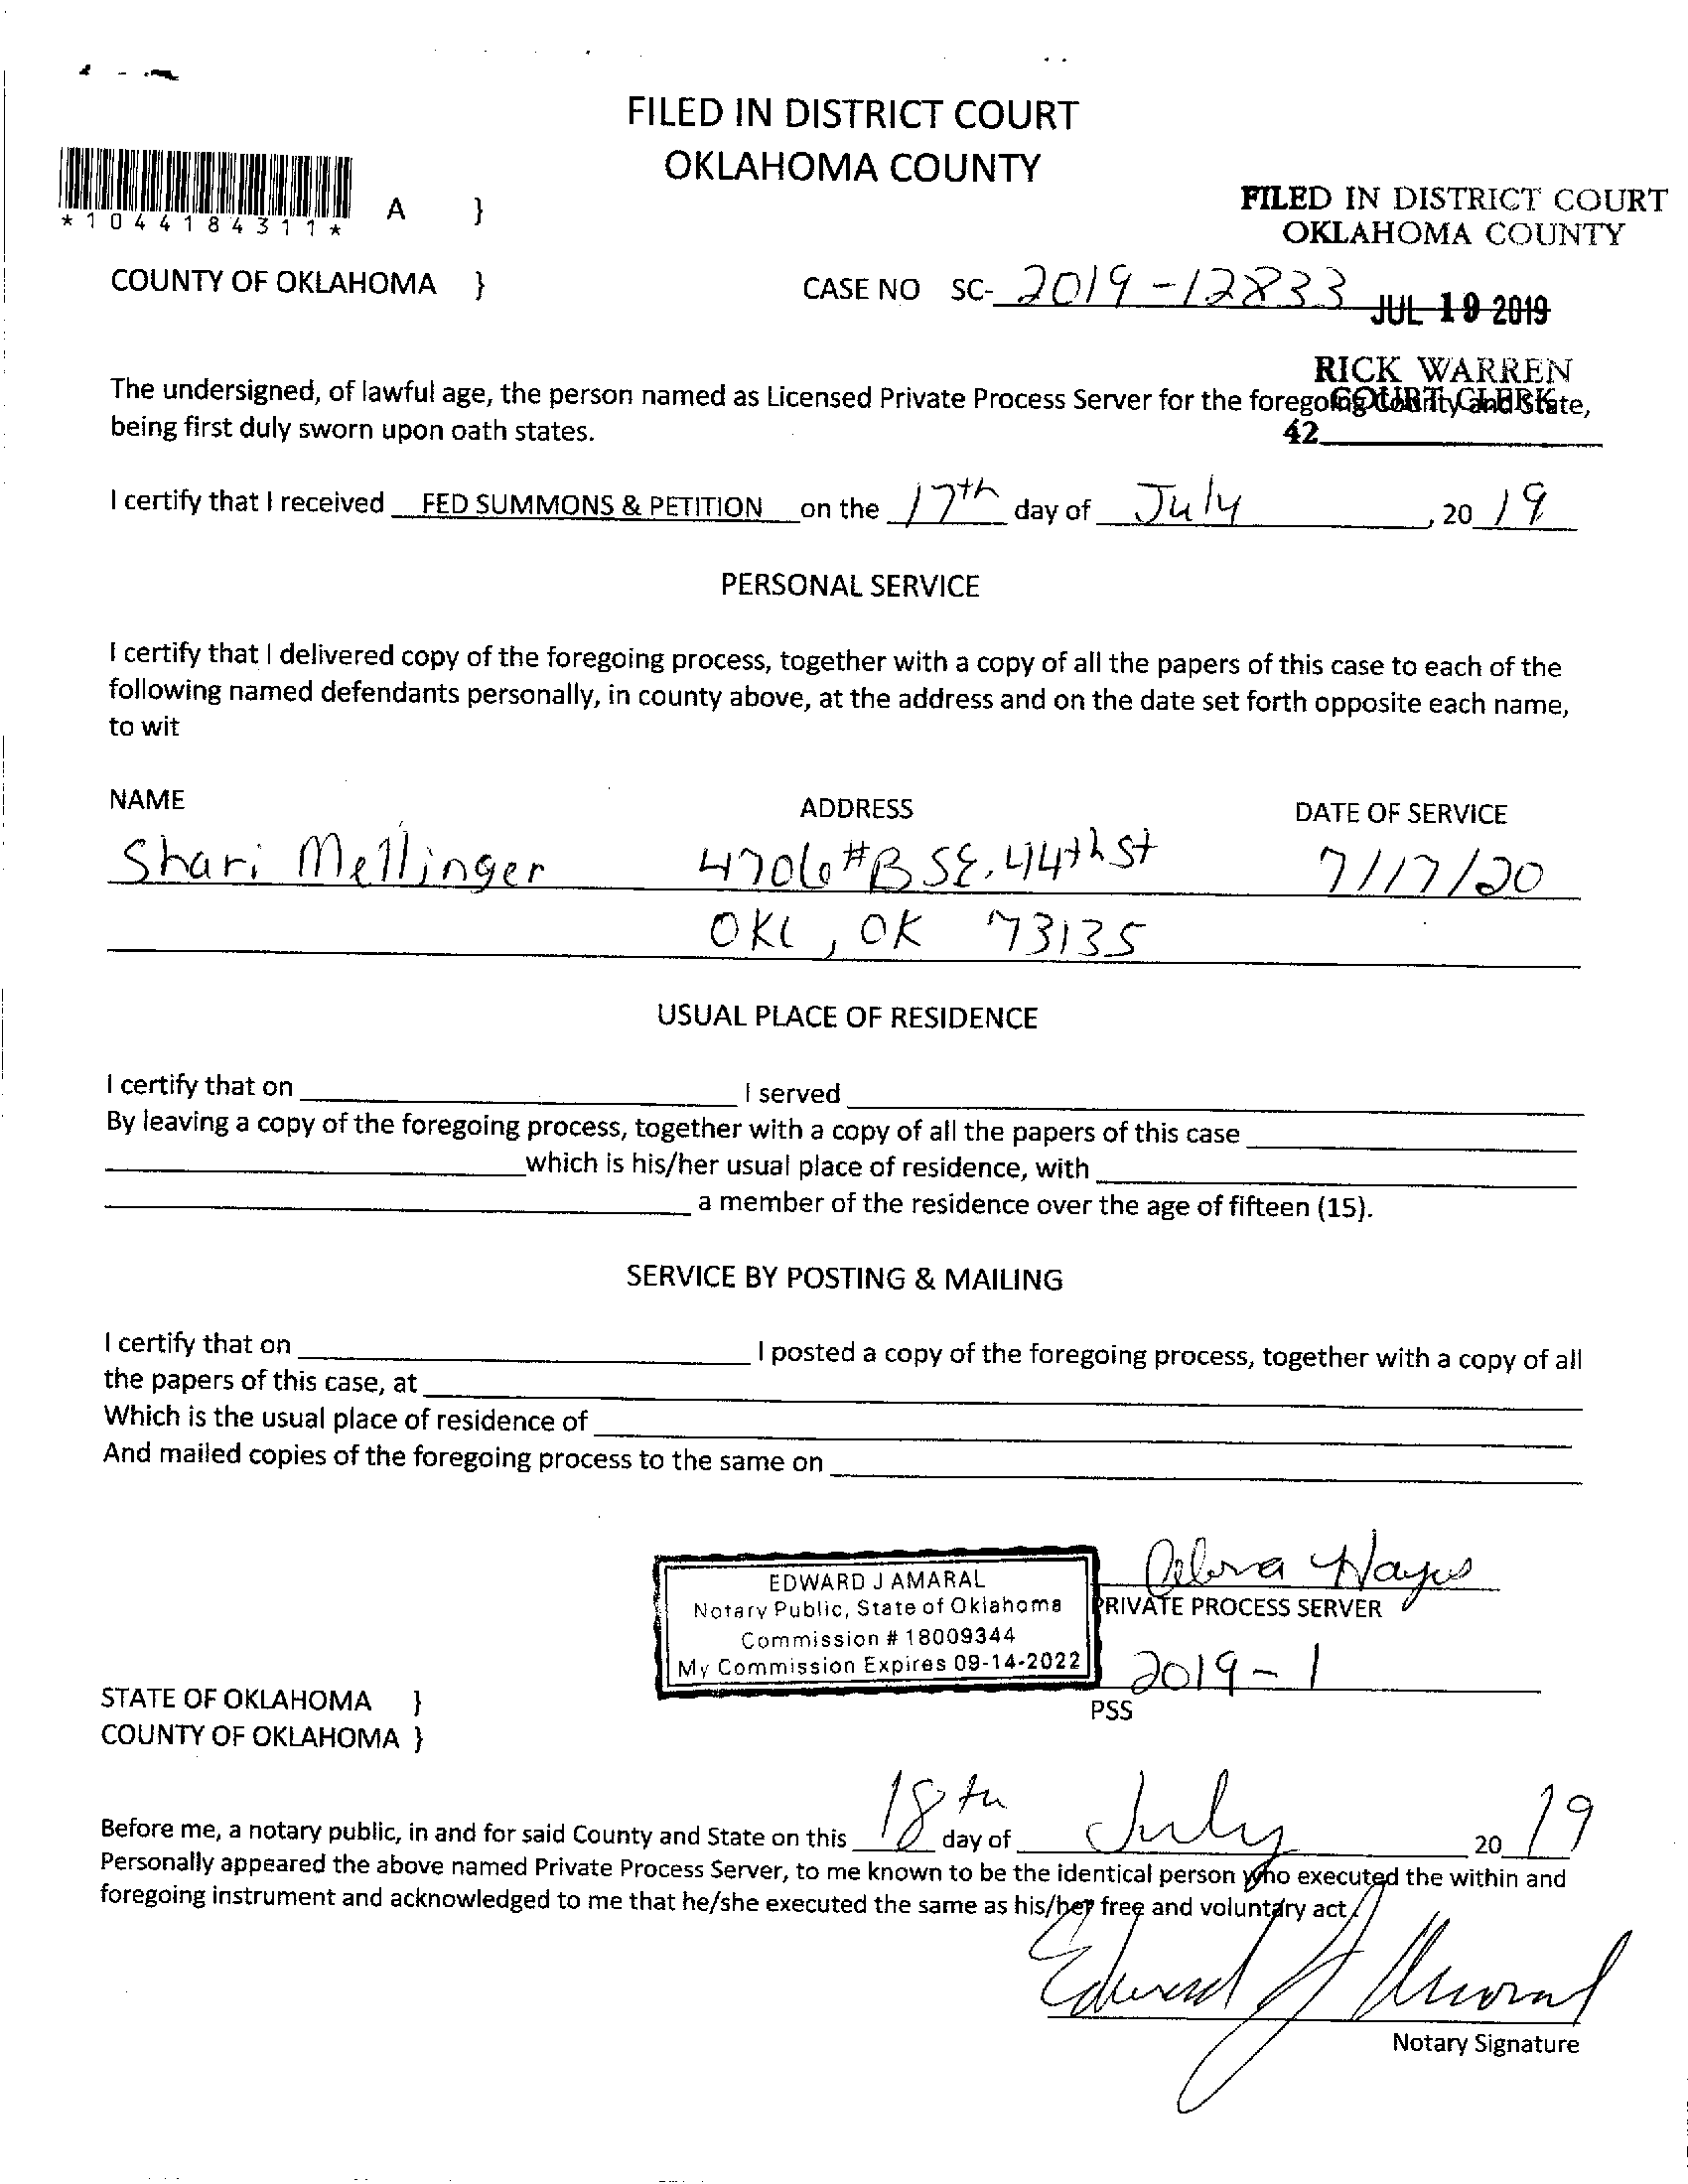 FILED IN DISTRICT COURT
OKLAHOMA COUNTY
FILED IN DISTRICT COURT
OKLAHOMA COUNTY
*1044184311*
A }
COUNTY OF OKLAHOMA }
CASE NO SC- 2019-12833
JUL 19 2019
RICK WARREN
COURT CLERK
42
The undersigned, of lawful age, the person named as Licensed Private Process Server for the foregoing County and State,
being first duly sworn upon oath states.
I certify that I received FED SUMMONS & PETITION on the 17th day of July, 20 19
PERSONAL SERVICE
I certify that I delivered copy of the foregoing process, together with a copy of all the papers of this case to each of the
following named defendants personally, in county above, at the address and on the date set forth opposite each name,
to wit
NAME ADDRESS DATE OF SERVICE
Shari Mellinger 4706 #B SE. 44th St 7/17/20
OKC, OK 73135
USUAL PLACE OF RESIDENCE
I certify that on I served
By leaving a copy of the foregoing process, together with a copy of all the papers of this case
which is his/her usual place of residence, with
a member of the residence over the age of fifteen (15).
SERVICE BY POSTING & MAILING
I certify that on I posted a copy of the foregoing process, together with a copy of all
the papers of this case, at
Which is the usual place of residence of
And mailed copies of the foregoing process to the same on
EDWARD J AMARAL
Notary Public, State of Oklahoma
Commission # 18009344
My Commission Expires 09-14-2022
Debra Hayes
PRIVATE PROCESS SERVER
2019-1
PSS
STATE OF OKLAHOMA }
COUNTY OF OKLAHOMA }
Before me, a notary public, in and for said County and State on this 18th day of July 20 19
Personally appeared the above named Private Process Server, to me known to be the identical person who executed the within and
foregoing instrument and acknowledged to me that he/she executed the same as his/her free and voluntary act.
Edward J Amaral
Notary Signature